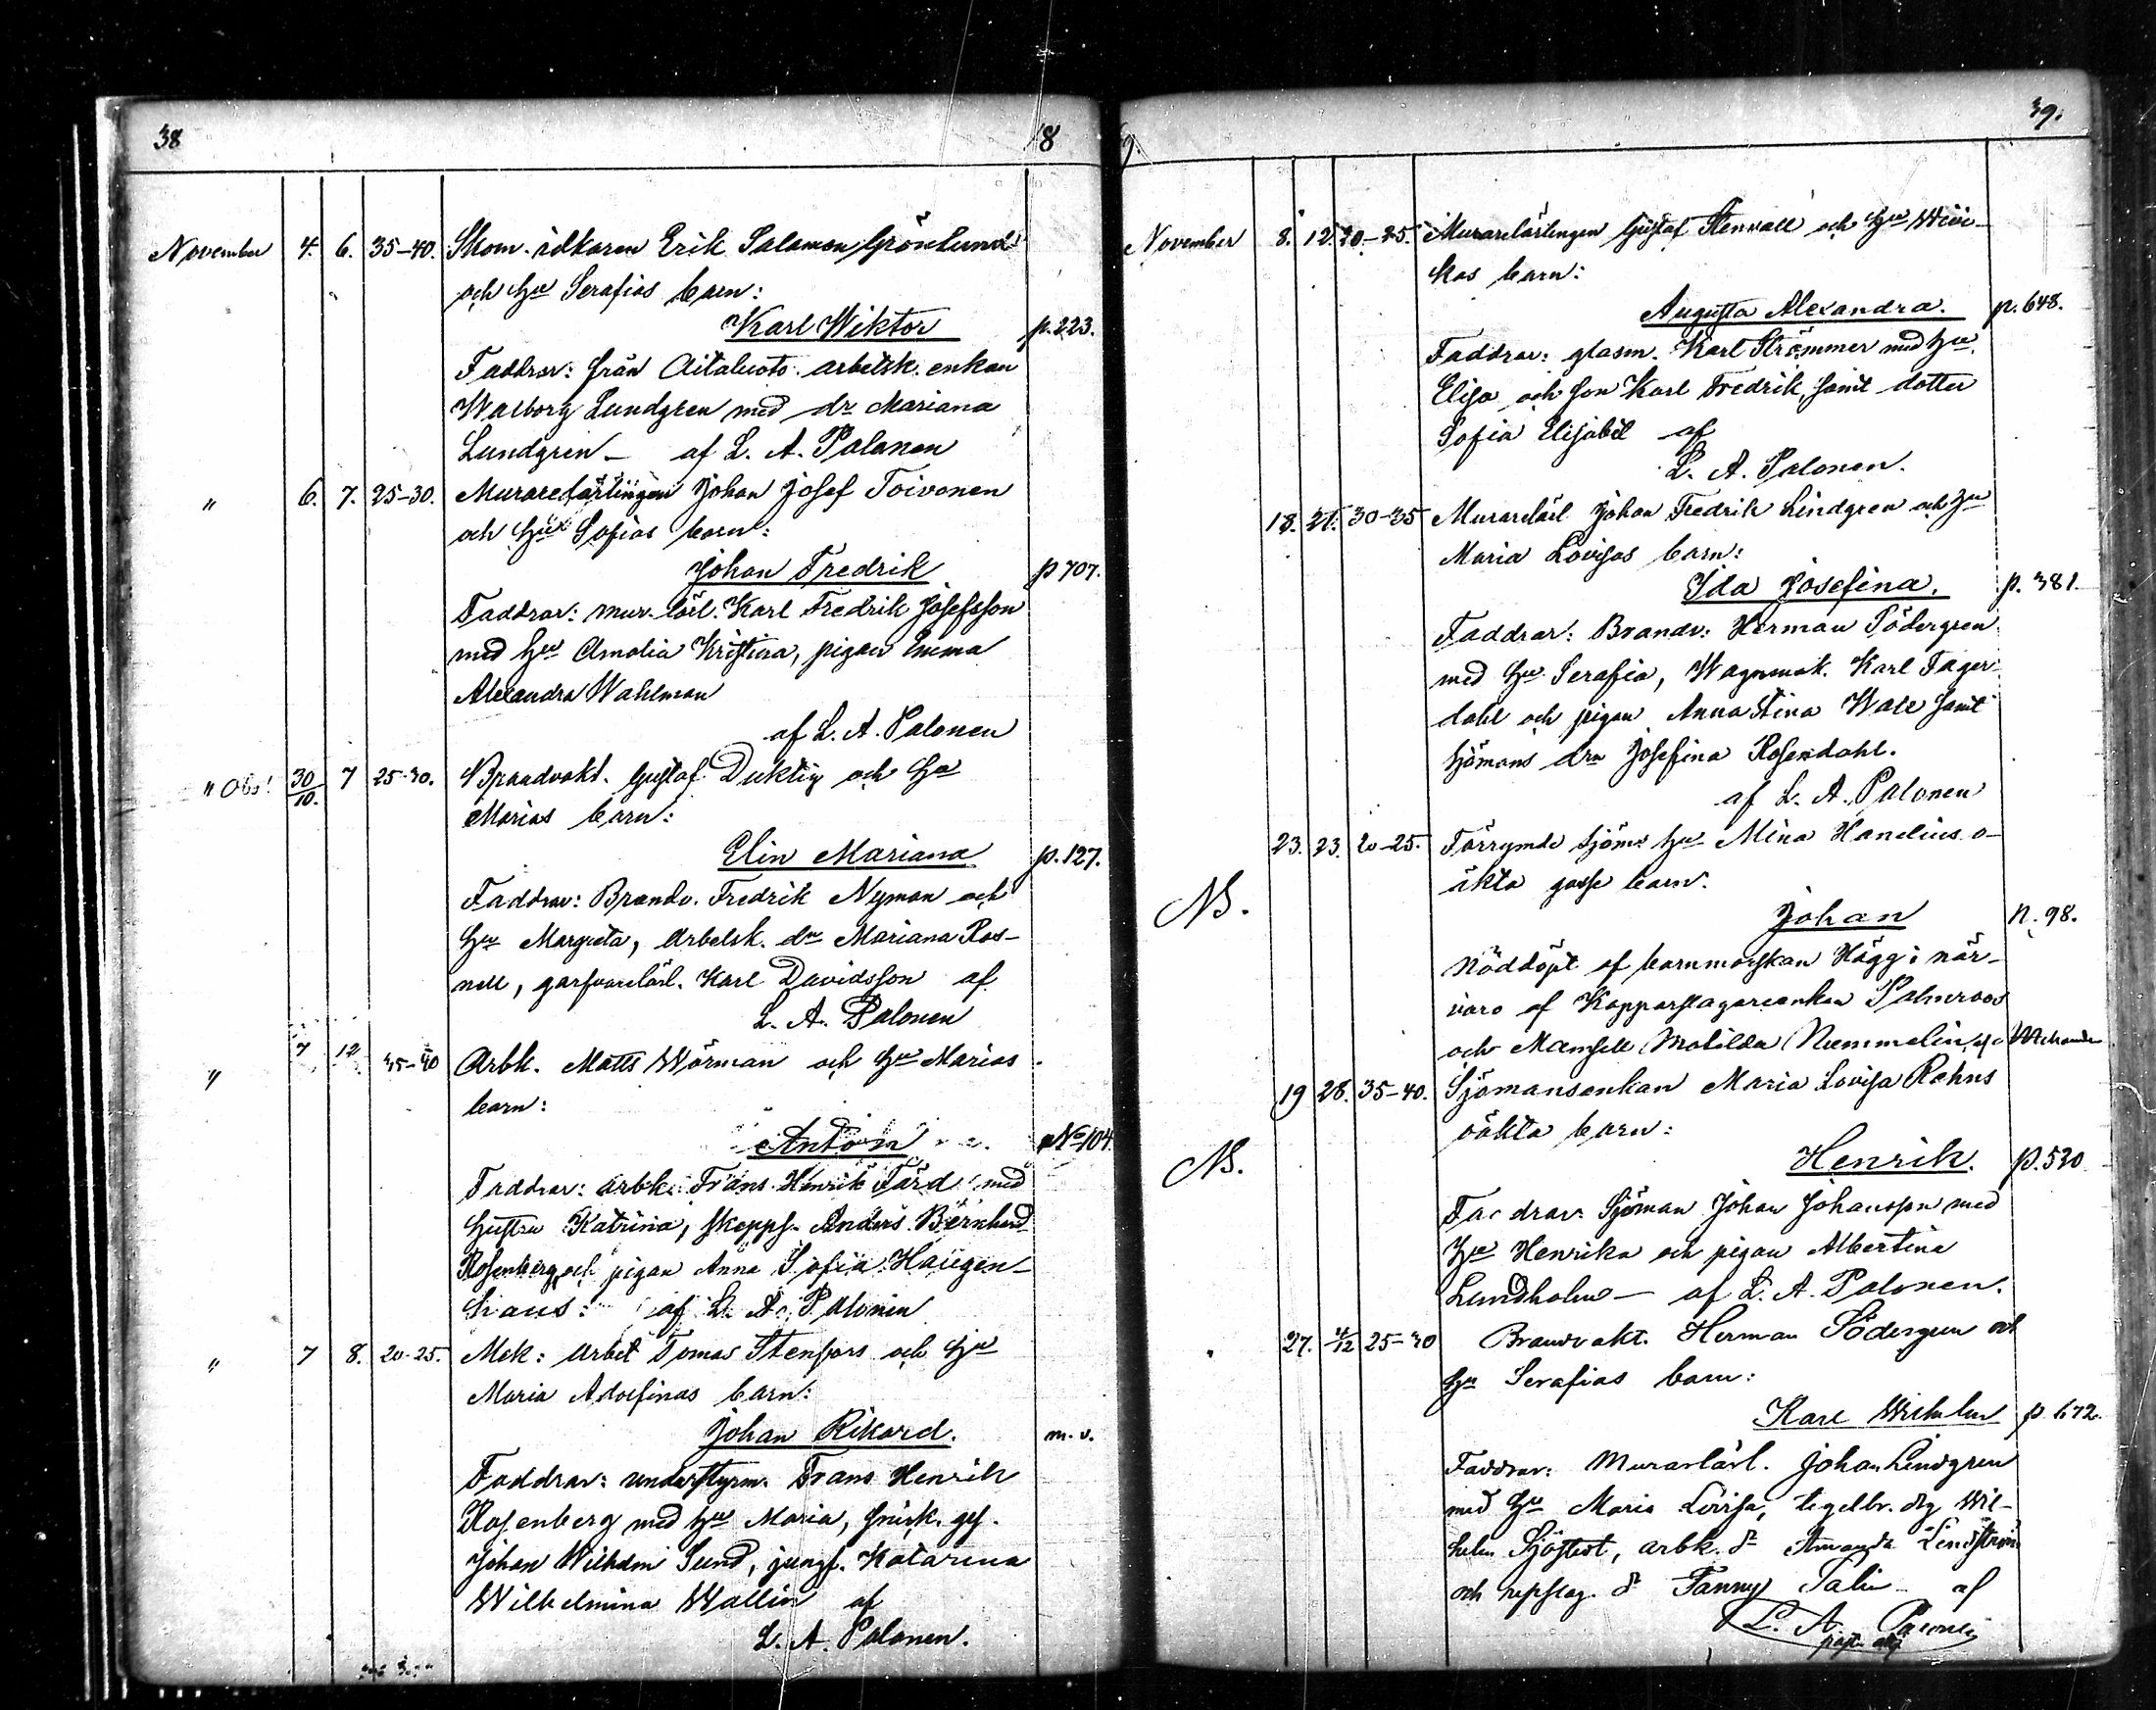 38
18
November 4. 6. 35-40. Skom. idkaren Erik Salamon Grönlund
och hu Serafias barn:
Karl Wiktor p. 223.
Faddrar: från Aitaluoto arbetsk. enkan
Walborg Lundgren med dr Mariana
Lundgren — af L. A. Palonen
" 6. 7. 25-30. Murarelärlingen Johan Josef Toivonen
och hu Sofias barn:
Johan Fredrik p 707.
Faddrar: mur. lärl. Karl Fredrik Josefsson
med hu Amalia Kristina, pigan Emma
Alexandra Wahlman
af L. A. Palonen
" Obs! 30/10. 7 25-30. Brandvakt. Gustaf Duktig och hu
Marias barn:
Elin Mariana p. 127.
Faddrar: Brandv. Fredrik Nyman och
hu Margreta, arbetsk. dr Mariana Ros-
nell, garfvarelärl. Karl Davidsson af
L. A. Palonen
" 7 12 35-40 Arbk. Matts Wörman och hu Marias
barn:
Anton No 104.
Faddrar: arbk. Frans Henrik Färd med
hustru Katrina, skepps. Anders Bernhard
Rosenberg och pigan Anna Sofia Haugen-
af L. A. Palonen
" 7 8. 20-25. Mek: arbet Tomas Stenfors och hu
Maria Adolfinas barn:
Johan Rikard. m. v.
Faddrar: understyrm. Frans Henrik
Rosenberg med hu Maria, snick. ges.
Johan Wilhelm Sund, jungf. Katarina
Wilhelmina Wallin af
L. A. Palonen.
9.
39.
November 8. 12. 20-25. Murarelärlingen Gustaf Stenvall och hu Wiii-
kas barn:
Augusta Alexandra. p. 648.
Faddrar: glasm. Karl Strömmer med hu
Elisa och son Karl Fredrik, samt dotter
Sofia Elisabet af
L. A. Palonen.
18. 21. 30-35 Murarelärl Johan Fredrik Lindgren och hu
Maria Lovisas barn:
Ida Josefina. p. 381
Faddrar: Brandv: Herman Södergren
med hu Serafia, Wagnmak. Karl Fager-
dahl och pigan Anna Stina Wall samt
sjömans drn Josefina Rosendahl.
af L. A. Palonen
23. 23. 20-25. Förrymde sjöms hu Mina Hanelius o-
äkta gosse barn:
NB.
Johan p. 98.
Nöddöpt af barnmorskan Hägg i när-
varo af Kopparslagareenkan Palmroos
och Mamsell Matilda Nummelin
19 28. 35-40. Sjömansenkan Maria Lovisa Rehns
oäkta barn:
NB.
Henrik. p. 530
Faddrar: Sjöman Johan Johansson med
hu Henrika och pigan Albertina
Lundholm — af L. A. Palonen.
" 27. 4/12 25-30 Brandvakt. Herman Södergren och
hu Serafias barn:
Karl Wilhelm p. 672.
Faddrar: Murarlärl. Johan Lindgren
med hu Maria Lovisa, tegelbr. drg Wil-
helm Sjöstedt, arbk. dr Amanda Lindström
och repslag. dr Fanny Salin af
L. A. Palonen
past. adj.